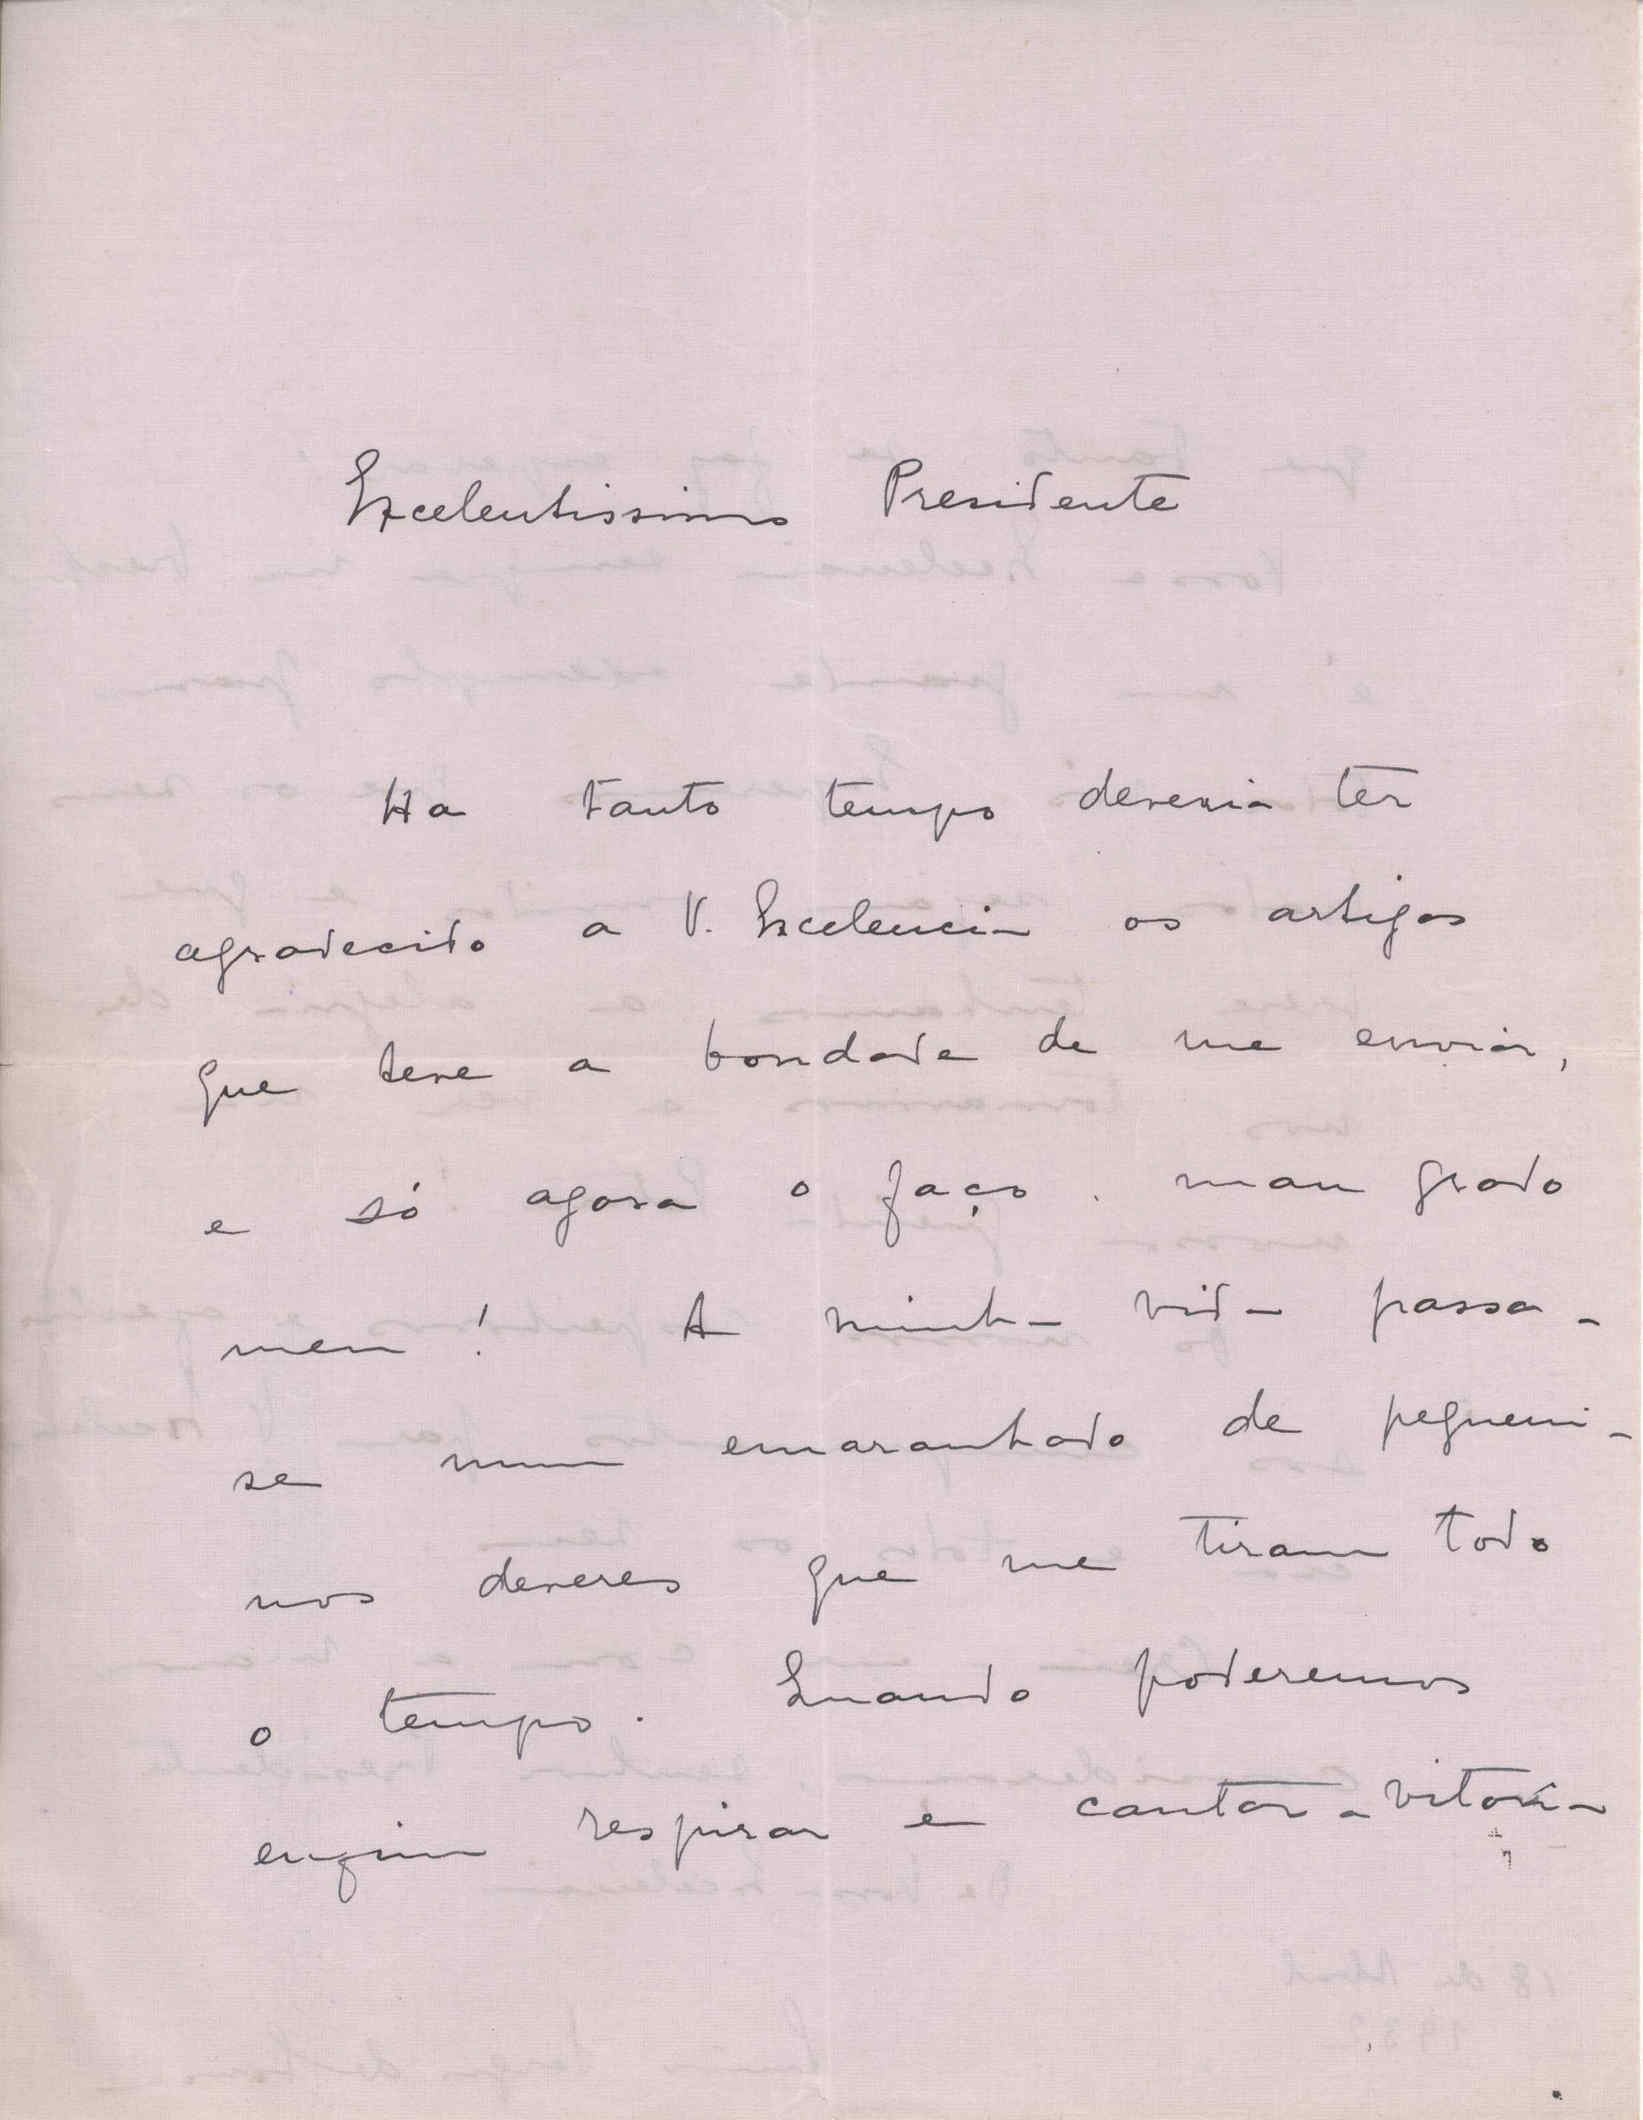 Excelentissimo Presidente
Ha tanto tempo deveria ter
agradecido a V. Excelencia os artigos
que teve a bondade de me enviar,
e só agora o faço. mau grado
meu! A minha vida passa-
se num emaranhado de pequeni-
nos deveres que me tiram todo
o tempo. Quando poderemos
enfim respirar e cantar a vitoria